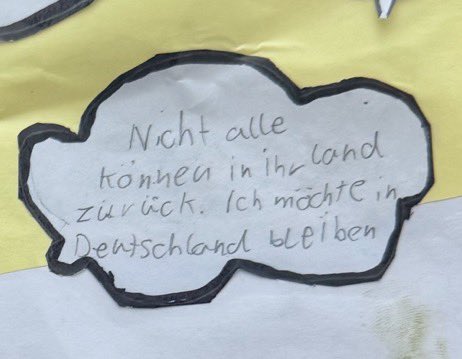 Nicht alle
können in ihr land
zurück. Ich möchte in
Deutschland bleiben